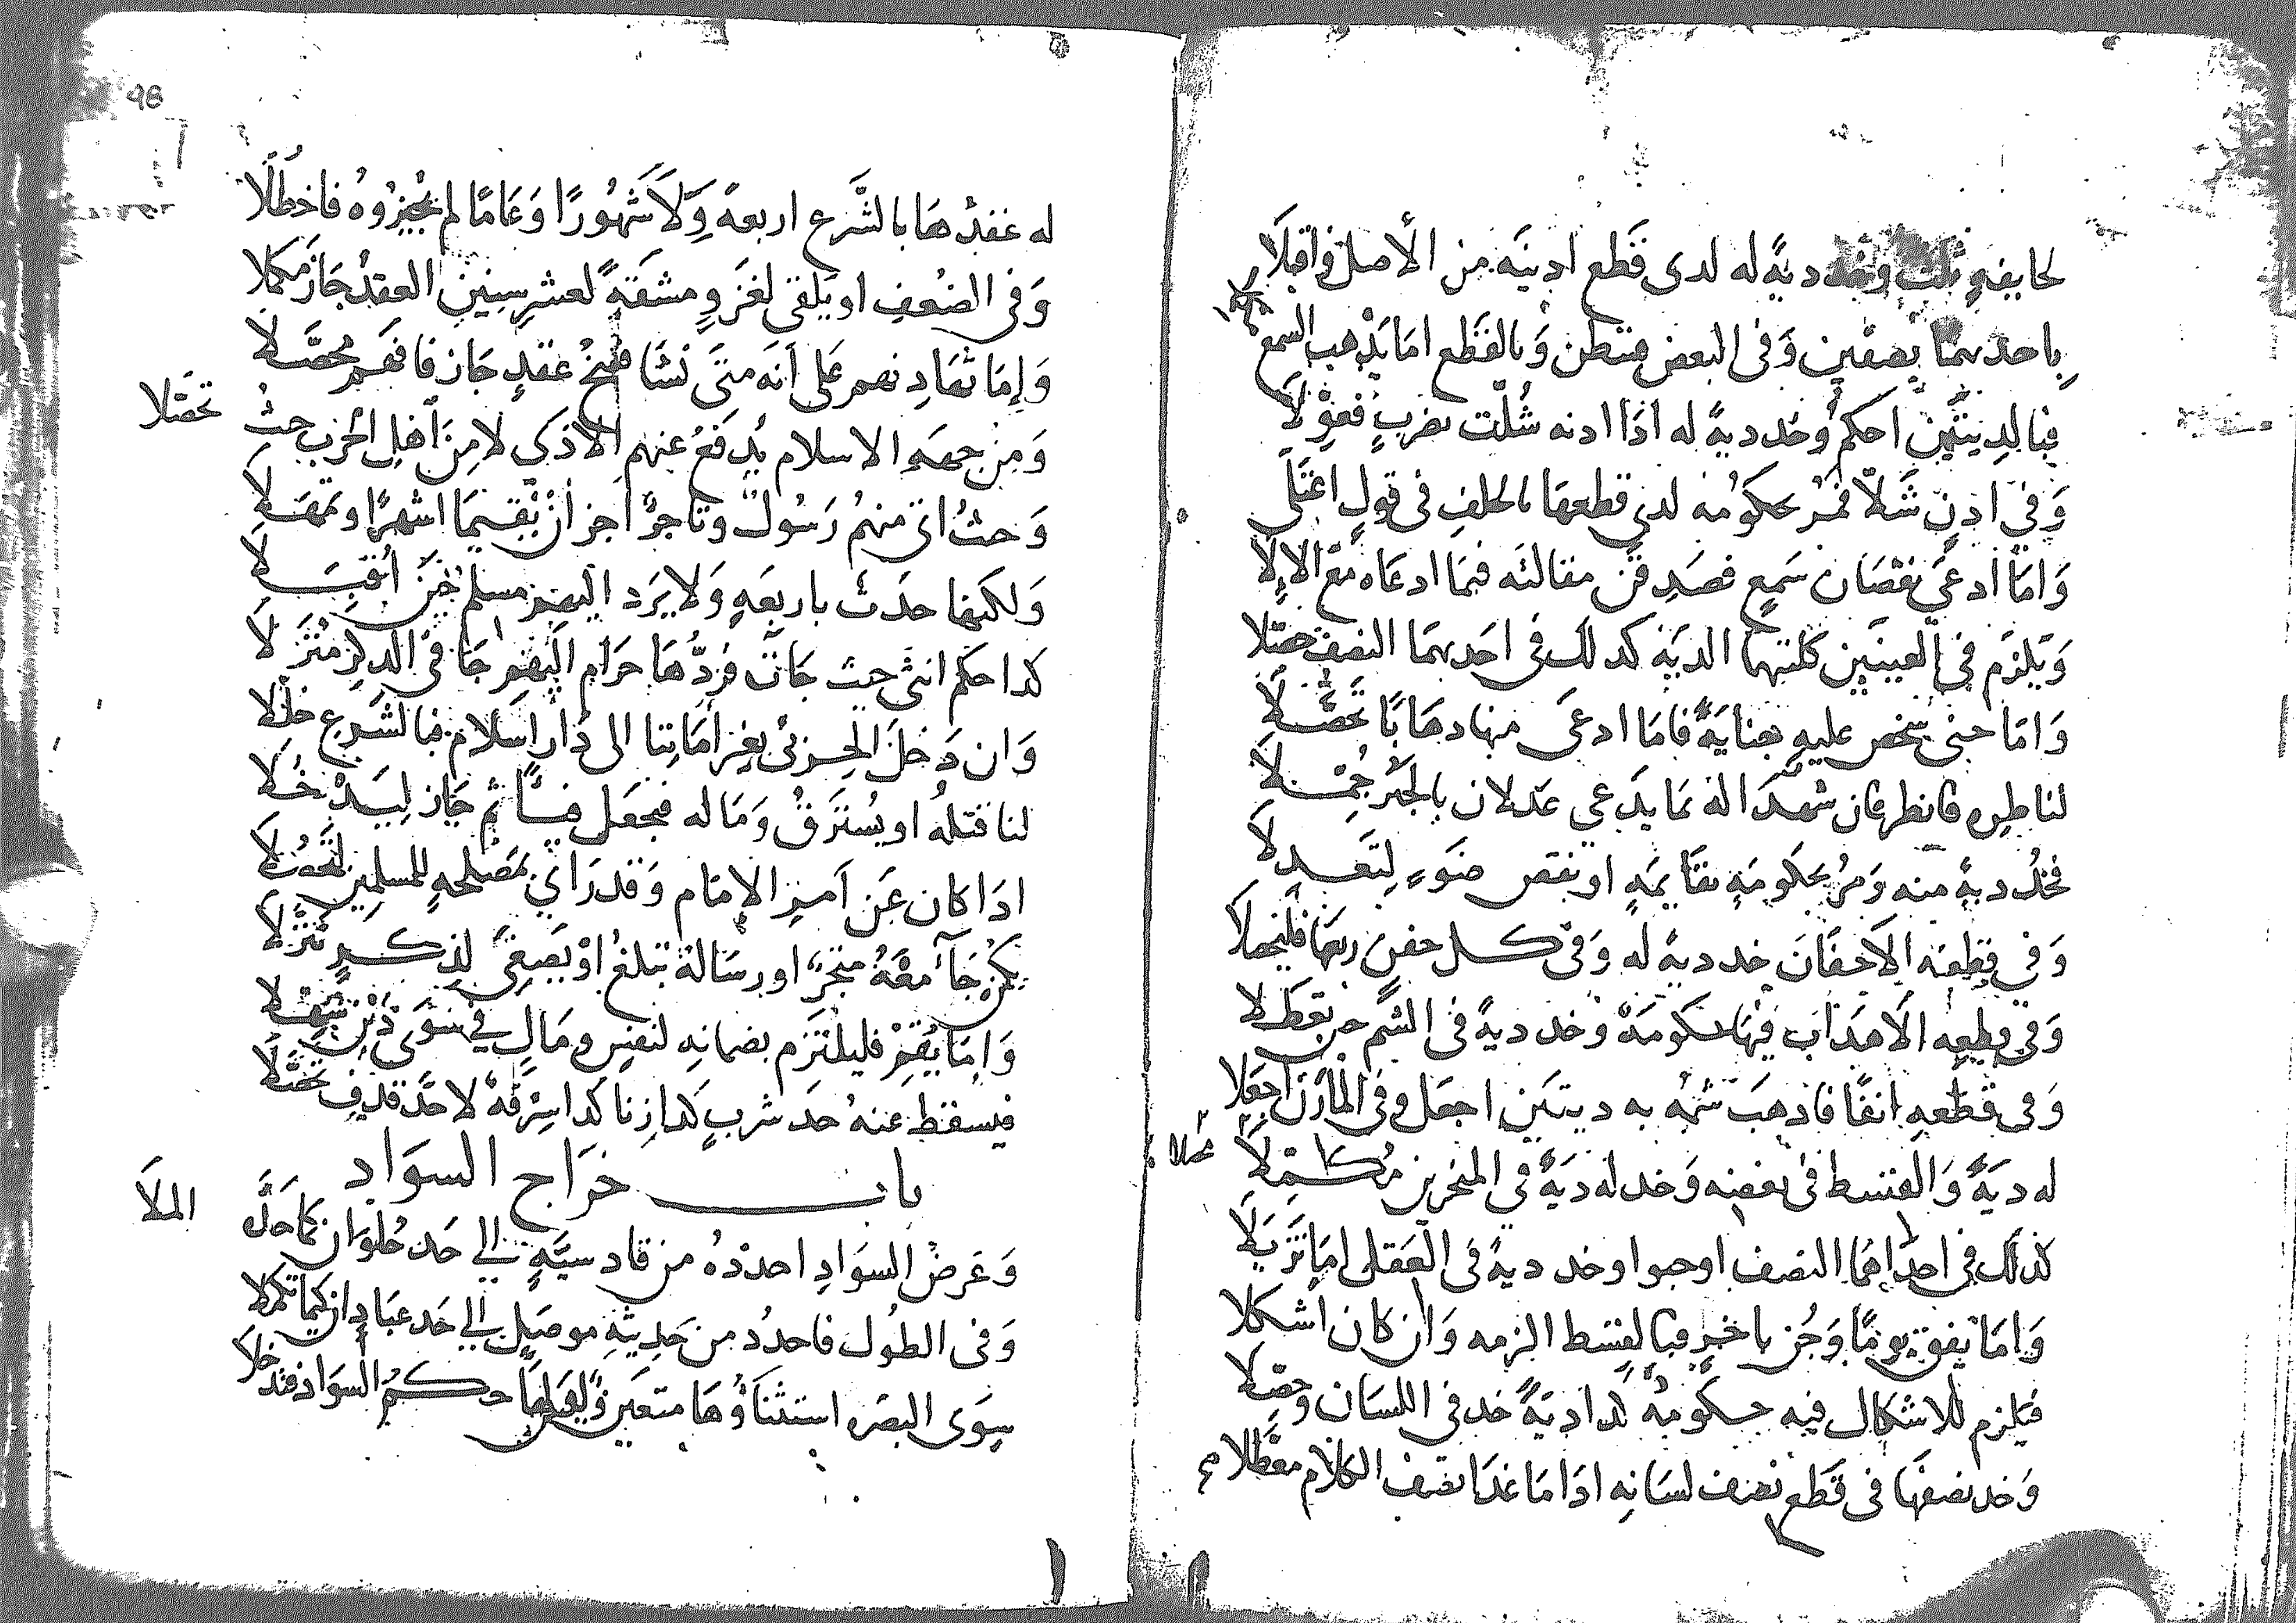 لجايفهٍ ثلث وخذ ديةً له لدى قَطع ادنيَه من الأصل فاقبلَا
باحديهما نصفين وَفى البعض قسّطن وَبالقَطع امَا يَذهب السمع
فبالديتين احكم وخذ ديةً له اذا ادنه شُلّت بضربٍ فعوِّلَا
وَفى ادنٍ شَلّا فمُر بحكومُه لدى قطعهَا بالخلفِ فى قولٍ اعتَلَى
وَامَا ادعَى نقصَان سَمعٍ فصَدِقَن مقالتَه فيمَا ادعَاه مَعَ الالَا
وَيَلزَم فى العينَين كلتيهما الديَه كذلك فى احَديهمَا النصف حصّلا
وَامَا جنى شخص عليهِ جنايَةً فامَا ادعَى منها دهَابًا تحصَّلَا
لناظره فانظر فان شهدَا له بمَا يَدعى عَدلان بالجَبر جُمّلَا
فخُذ ديةً منه وَمُر بحكومَهٍ بقَايمَهٍ او نقص ضَوءٍ لِتَعدلَا
وَفى قطعه الاجفَانَ خد ديةً له وَفى كل جفنٍ ربعَها فليجعلَا
وَفى قطعه الاهدَاب فيهَا حكومَةً وَخد ديةً فى الشم حين تعطلا
وَفى قَطعهِ انفًا فاذهَبَ شمُه به ديتَين اجعَل وفى المَارن اجعَلا
له ديَةً وَالقسط فى بعضه وَخد له ديَةً فى المنخرين مُكمّلَا
كذلك فى احدَاهُما النصف اوجبوا وخد ديةً فى العَقل امَا تَزيَلَا
وَامَا يفق يومًا وَجُن باخرٍ فبالقسط الزمه وَان كان اشكلا
فيَلزم للاشكال فيه حكومةٌ كدا ديَةً خد فى اللسَان وحصّلا
وَخد نصفهَا فى قَطع نصف لسَانِه ادَا مَا غدَا نصف الكلَام معَطّلا
98
له عقدهَا بالشَّرع اربعهً وَلَا شهُورًا وَعَامًا لم يجيزُوهُ فاحظلَا
وَفى الضعف او يَلقى لغَزوٍ ومشقةٍ لعشرِ سِنينٍ العقدُ جَازَ مكملا
وَإمَا تهَادِنهم على أنَه متَى نشَا فسخُ عقدٍ جَاز فافهم محصَّلا
وَمِن جهه الاسلام يُدفعُ عنهم الاذَى لا مِنَ اَهلِ الحَرب حيثُ
تحصّلا
وَحيثُ اتى منهمُ رَسُولٌ وتَاجرٌ اجز اَن يُقيمَا اشهرًا وتمهَّلَا
وَلكنها حدَت باربعَهٍ وَلا يَرَد اليهم مسلم حين أقبَلَا
كدا حكم انثى حيث جَات فردُّهَا حرَام اليهم جَا فى الدكر منزلَا
وَان دَخلَ الحربى بغير امَاننا الى دَار اسلام فبالشَرع حللا
لنا قتلهُ او يُسترقُ وَمَا له فيجعَل فيئًا ثم جَاز لِيَدخُلَا
ادَا كان عَن اَمرِ الإمَام وَقد رَاى بمَصلحهٍ للمسلمين
يكن جَآ معَهُ متجرٌ او رسَالة تبلغُ اوْ يَصغى لذِكرٍ تنزّلا
وَامَا يُقمْ فليلتَزم بضمانِه لنفسٍ ومَالٍ فى سوَى دين
فيسقط عنهُ حَد شربٍ كدا زنا كدا سرقهٌ لا حَدَّ قدفٍ تحصّلَا
باب خرَاج السوَاد
وَعَرضُ السوَادِ احدُدهُ من قادسيَّهٍ الى حَد حُلوَان كمَا حَلَّه
الملَا
وَفى الطُول فاحدُد من حَديثهِ موصلٍ الى حَد عبَادان كيمَا تكملا
سِوَى البصَره استثنَاؤُهَا متعين حكمُ السوَاد